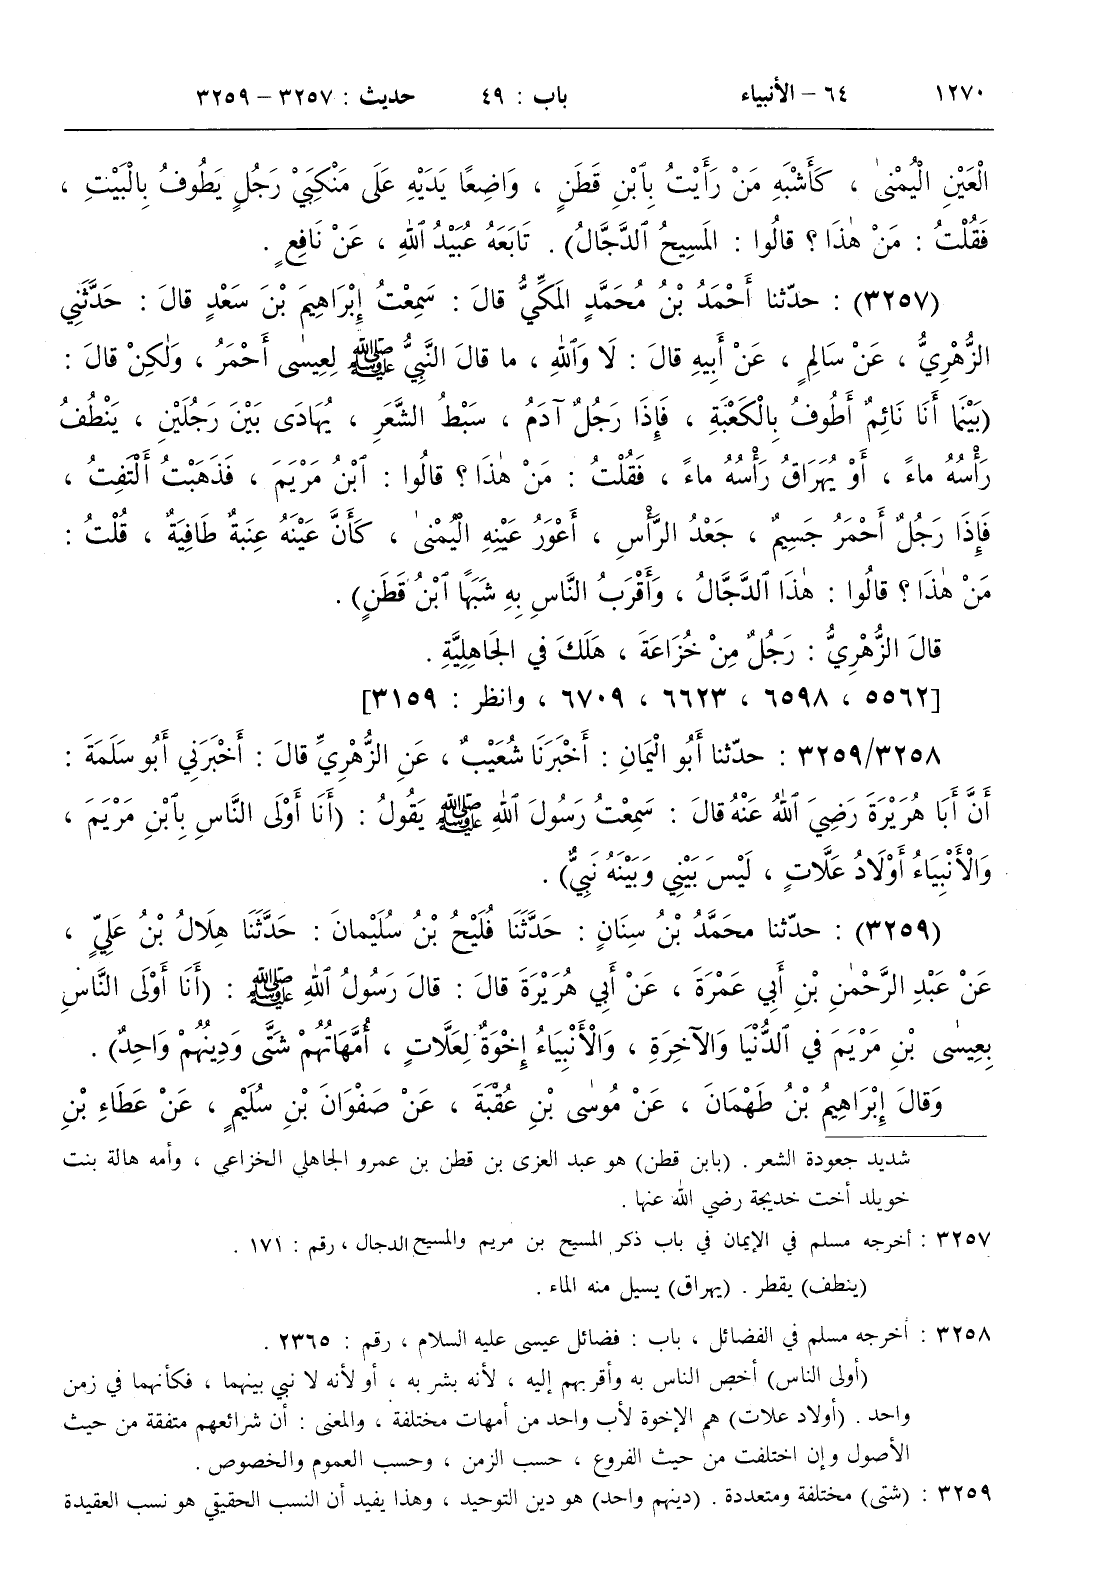 ١٢٧٠ ٦٤ – الأنبياء باب : ٤٩ حديث : ٣٢٥٧ – ٣٢٥٩
الْعَيْنِ الْيُمْنىٰ ، كَأَشْبَهِ مَنْ رَأَيْتُ بِٱبْنِ قَطَنٍ ، وَاضِعًا يَدَيْهِ عَلَى مَنْكِبَيْ رَجُلٍ يَطُوفُ بِالْبَيْتِ ،
فَقُلْتُ : مَنْ هٰذَا ؟ قالُوا : المَسِيحُ ٱلدَّجَّالُ) . تَابَعَهُ عُبَيْدُ ٱللهِ ، عَنْ نَافِعٍ .
(٣٢٥٧) : حدّثنا أَحْمَدُ بْنُ مُحَمَّدٍ المَكِّيُّ قالَ : سَمِعْتُ إِبْرَاهِيمَ بْنَ سَعْدٍ قالَ : حَدَّثَنِي
الزُّهْرِيُّ ، عَنْ سَالِمٍ ، عَنْ أَبِيهِ قالَ : لَا وَٱللهِ ، ما قالَ النَّبِيُّ ﷺ لِعِيسٰى أَحْمَرُ ، وَلٰكِنْ قالَ :
(بَيْنَما أَنَا نَائِمٌ أَطُوفُ بِالْكَعْبَةِ ، فَإِذَا رَجُلٌ آدَمُ ، سَبْطُ الشَّعَرِ ، يُهَادَى بَيْنَ رَجُلَيْنِ ، يَنْطُفُ
رَأْسُهُ ماءً ، أَوْ يُهَرَاقُ رَأْسُهُ ماءً ، فَقُلْتُ : مَنْ هٰذَا ؟ قالُوا : ٱبْنُ مَرْيَمَ ، فَذَهَبْتُ أَلْتَفِتُ ،
فَإِذَا رَجُلٌ أَحْمَرُ جَسِيمٌ ، جَعْدُ الرَّأْسِ ، أَعْوَرُ عَيْنِهِ الْيُمْنىٰ ، كَأَنَّ عَيْنَهُ عِنَبَةٌ طَافِيَةٌ ، قُلْتُ :
مَنْ هٰذَا ؟ قالُوا : هٰذَا ٱلدَّجَّالُ ، وَأَقْرَبُ النَّاسِ بِهِ شَبَهًا ٱبْنُ قَطَنٍ) .
قالَ الزُّهْرِيُّ : رَجُلٌ مِنْ خُزَاعَةَ ، هَلَكَ في الجَاهِلِيَّةِ .
[٥٥٦٢ ، ٦٥٩٨ ، ٦٦٢٣ ، ٦٧٠٩ ، وانظر : ٣١٥٩]
٣٢٥٩/٣٢٥٨ : حدّثنا أَبُو الْيَمَانِ : أَخْبَرَنَا شُعَيْبٌ ، عَنِ الزُّهْرِيِّ قالَ : أَخْبَرَنِي أَبُو سَلَمَةَ :
أَنَّ أَبَا هُرَيْرَةَ رَضِيَ ٱللهُ عَنْهُ قالَ : سَمِعْتُ رَسُولَ ٱللهِ ﷺ يَقُولُ : (أَنَا أَوْلَى النَّاسِ بِٱبْنِ مَرْيَمَ ،
وَالْأَنْبِيَاءُ أَوْلَادُ عَلَّاتٍ ، لَيْسَ بَيْنِي وَبَيْنَهُ نَبِيٌّ) .
(٣٢٥٩) : حدّثنا محَمَّدُ بْنُ سِنَانٍ : حَدَّثَنَا فُلَيْحُ بْنُ سُلَيْمانَ : حَدَّثَنَا هِلَالُ بْنُ عَلِيٍّ ،
عَنْ عَبْدِ الرَّحْمٰنِ بْنِ أَبِي عَمْرَةَ ، عَنْ أَبِي هُرَيْرَةَ قالَ : قالَ رَسُولُ ٱللهِ ﷺ : (أَنَا أَوْلَى النَّاسِ
بِعِيسٰى بْنِ مَرْيَمَ في ٱلدُّنْيَا وَالآخِرَةِ ، وَالْأَنْبِيَاءُ إِخْوَةٌ لِعَلَّاتٍ ، أُمَّهَاتُهُمْ شَتَّى وَدِينُهُمْ وَاحِدٌ) .
وَقالَ إِبْرَاهِيمُ بْنُ طَهْمَانَ ، عَنْ مُوسٰى بْنِ عُقْبَةَ ، عَنْ صَفْوَانَ بْنِ سُلَيْمٍ ، عَنْ عَطَاءِ بْنِ
شديد جعودة الشعر . (بابن قطن) هو عبد العزى بن قطن بن عمرو الجاهلي الخزاعي ، وأمه هالة بنت
خويلد أخت خديجة رضي الله عنها .
٣٢٥٧ : أخرجه مسلم في الإيمان في باب ذكر المسيح بن مريم والمسيح الدجال ، رقم : ١٧١ .
(ينطف) يقطر . (يهراق) يسيل منه الماء .
٣٢٥٨ : أخرجه مسلم في الفضائل ، باب : فضائل عيسى عليه السلام ، رقم : ٢٣٦٥ .
(أولى الناس) أخص الناس به وأقربهم إليه ، لأنه بشر به ، أو لأنه لا نبي بينهما ، فكأنهما في زمن
واحد . (أولاد علات) هم الإخوة لأب واحد من أمهات مختلفة ، والمعنى : أن شرائعهم متفقة من حيث
الأصول وإن اختلفت من حيث الفروع ، حسب الزمن ، وحسب العموم والخصوص .
٣٢٥٩ : (شتى) مختلفة ومتعددة . (دينهم واحد) هو دين التوحيد ، وهذا يفيد أن النسب الحقيقي هو نسب العقيدة